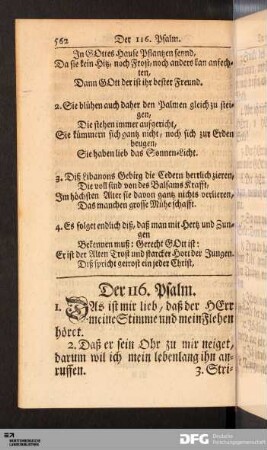 562 Der 116. Psalm.
In GOttes Hause Pflantzen seynd,
Da sie kein Hitz, noch Frost, noch anders kan anfech-
ten,
Dann GOtt der ist ihr bester Freund.
2. Sie blühen auch daher den Palmen gleich zu stei-
gen,
Die stehen immer aufgericht,
Sie kümmern sich gantz nicht, noch sich zur Erden
beugen,
Sie haben lieb das Sonnen-Licht.
3. Diß Libanons Gebirg die Cedern herrlich zieren,
Die voll sind von des Balsams Krafft,
Im höchsten Alter sie davon gantz nichts verlieren,
Das manchen grosse Mühe schafft.
4. Es folget endlich diß, daß man mit Hertz und Zun-
gen
Bekennen muß: Gerecht GOtt ist:
Er ist der Alten Trost und starcker Hort der Jungen.
Diß spricht getrost ein jeder Christ.
Der 116. Psalm.
1. DAs ist mir lieb, daß der HErr
meine Stimme und mein Flehen
höret.
2. Daß er sein Ohr zu mir neiget,
darum wil ich mein lebenlang ihn an-
ruffen.
3. Stri-
DFG